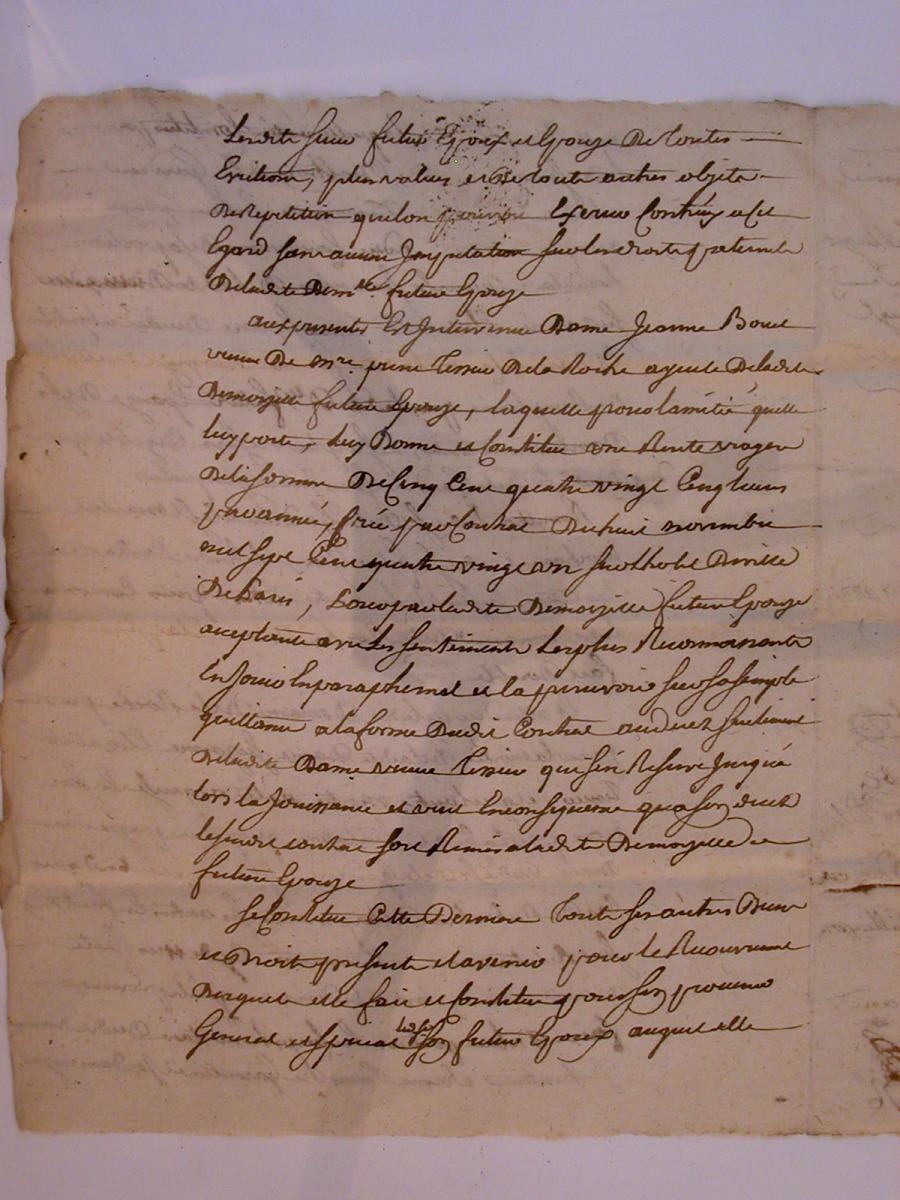 Lesdits sieur futur Epoux et Epouze De toutes
Evictions, plus values et De toute autres objets
De Repetition quelon pouroit Exercer Contr'eux acet
Egard sans aucune Jmputation sur les droits paternels
Deladite Dem.lle future Epouze
aux presentes Est Jntervenue Dame Jeanne
veuve De mre pierre Tessier Dela Roche ayeule Deladite
Demoizelle future Epouze, laquelle pour lamitié quelle
luy porte, luy Donne et Constitue une Rente viagere
Dela somme De Cinq Cent quatre vingt Cinq livres
par année, Créé par Contrat Du huit novembre
mil sept Cent quatre vingt un sur lhotel Deville
De Paris, pour par ladite Demoizelle future Epouze
aceptante avec les sentiments Les plus Reconnoissants
En Jouir En paraphernal et la percevoir sur sa simple
quittance a la forme Dudit Contrat au decez seulement
Deladite Dame veuve Tessier qui s'en Reserve Jusqu'a
lors la Jouissance et veut En consequence qu'a son decez
le susdit contrat soit Remis a ladite Demoizelle
future Epouze
se Constitue Cette Derniere Touts ses autres Biens
et Droits presents et avenir pour le Recouvrement
Desquels elle fait et Constitue pour son procureur
General et special ledit sr son futur Epoux auquel elle